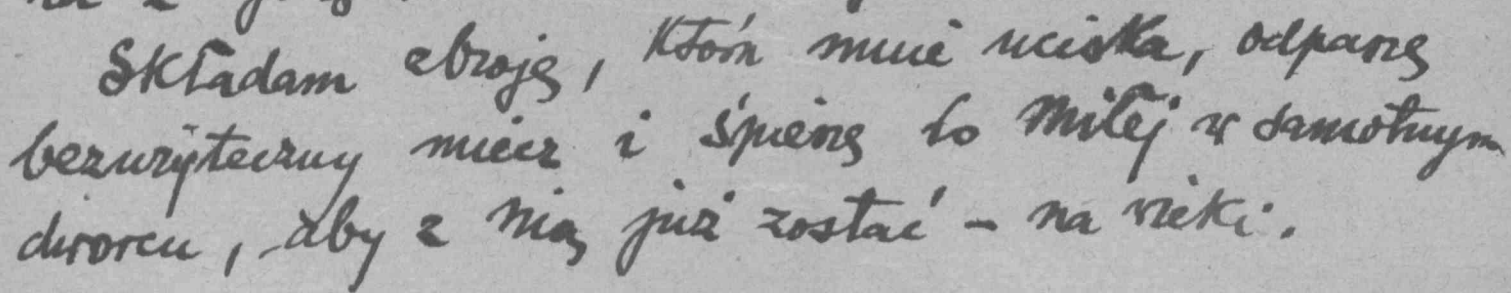 Składam zbroję, która mnie uciska, odpaszę
bezużyteczny miecz i śpieszę do Miłej w samotnym
dworcu, aby z Nią już zostać – na wieki.